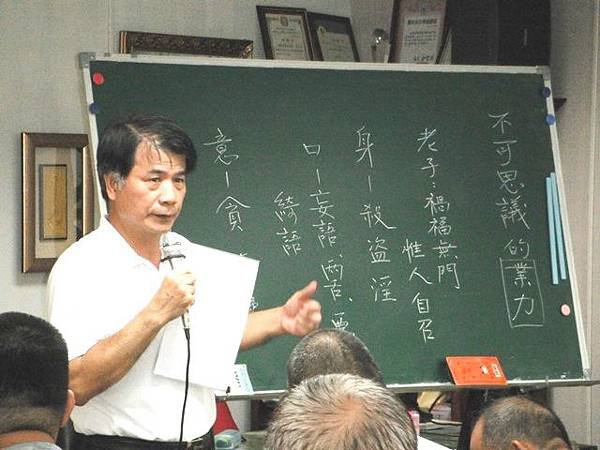 不可思議的業力
老子：禍福無門
惟人自召
身－殺盜淫
口－妄語、兩舌、惡
綺語
意－貪